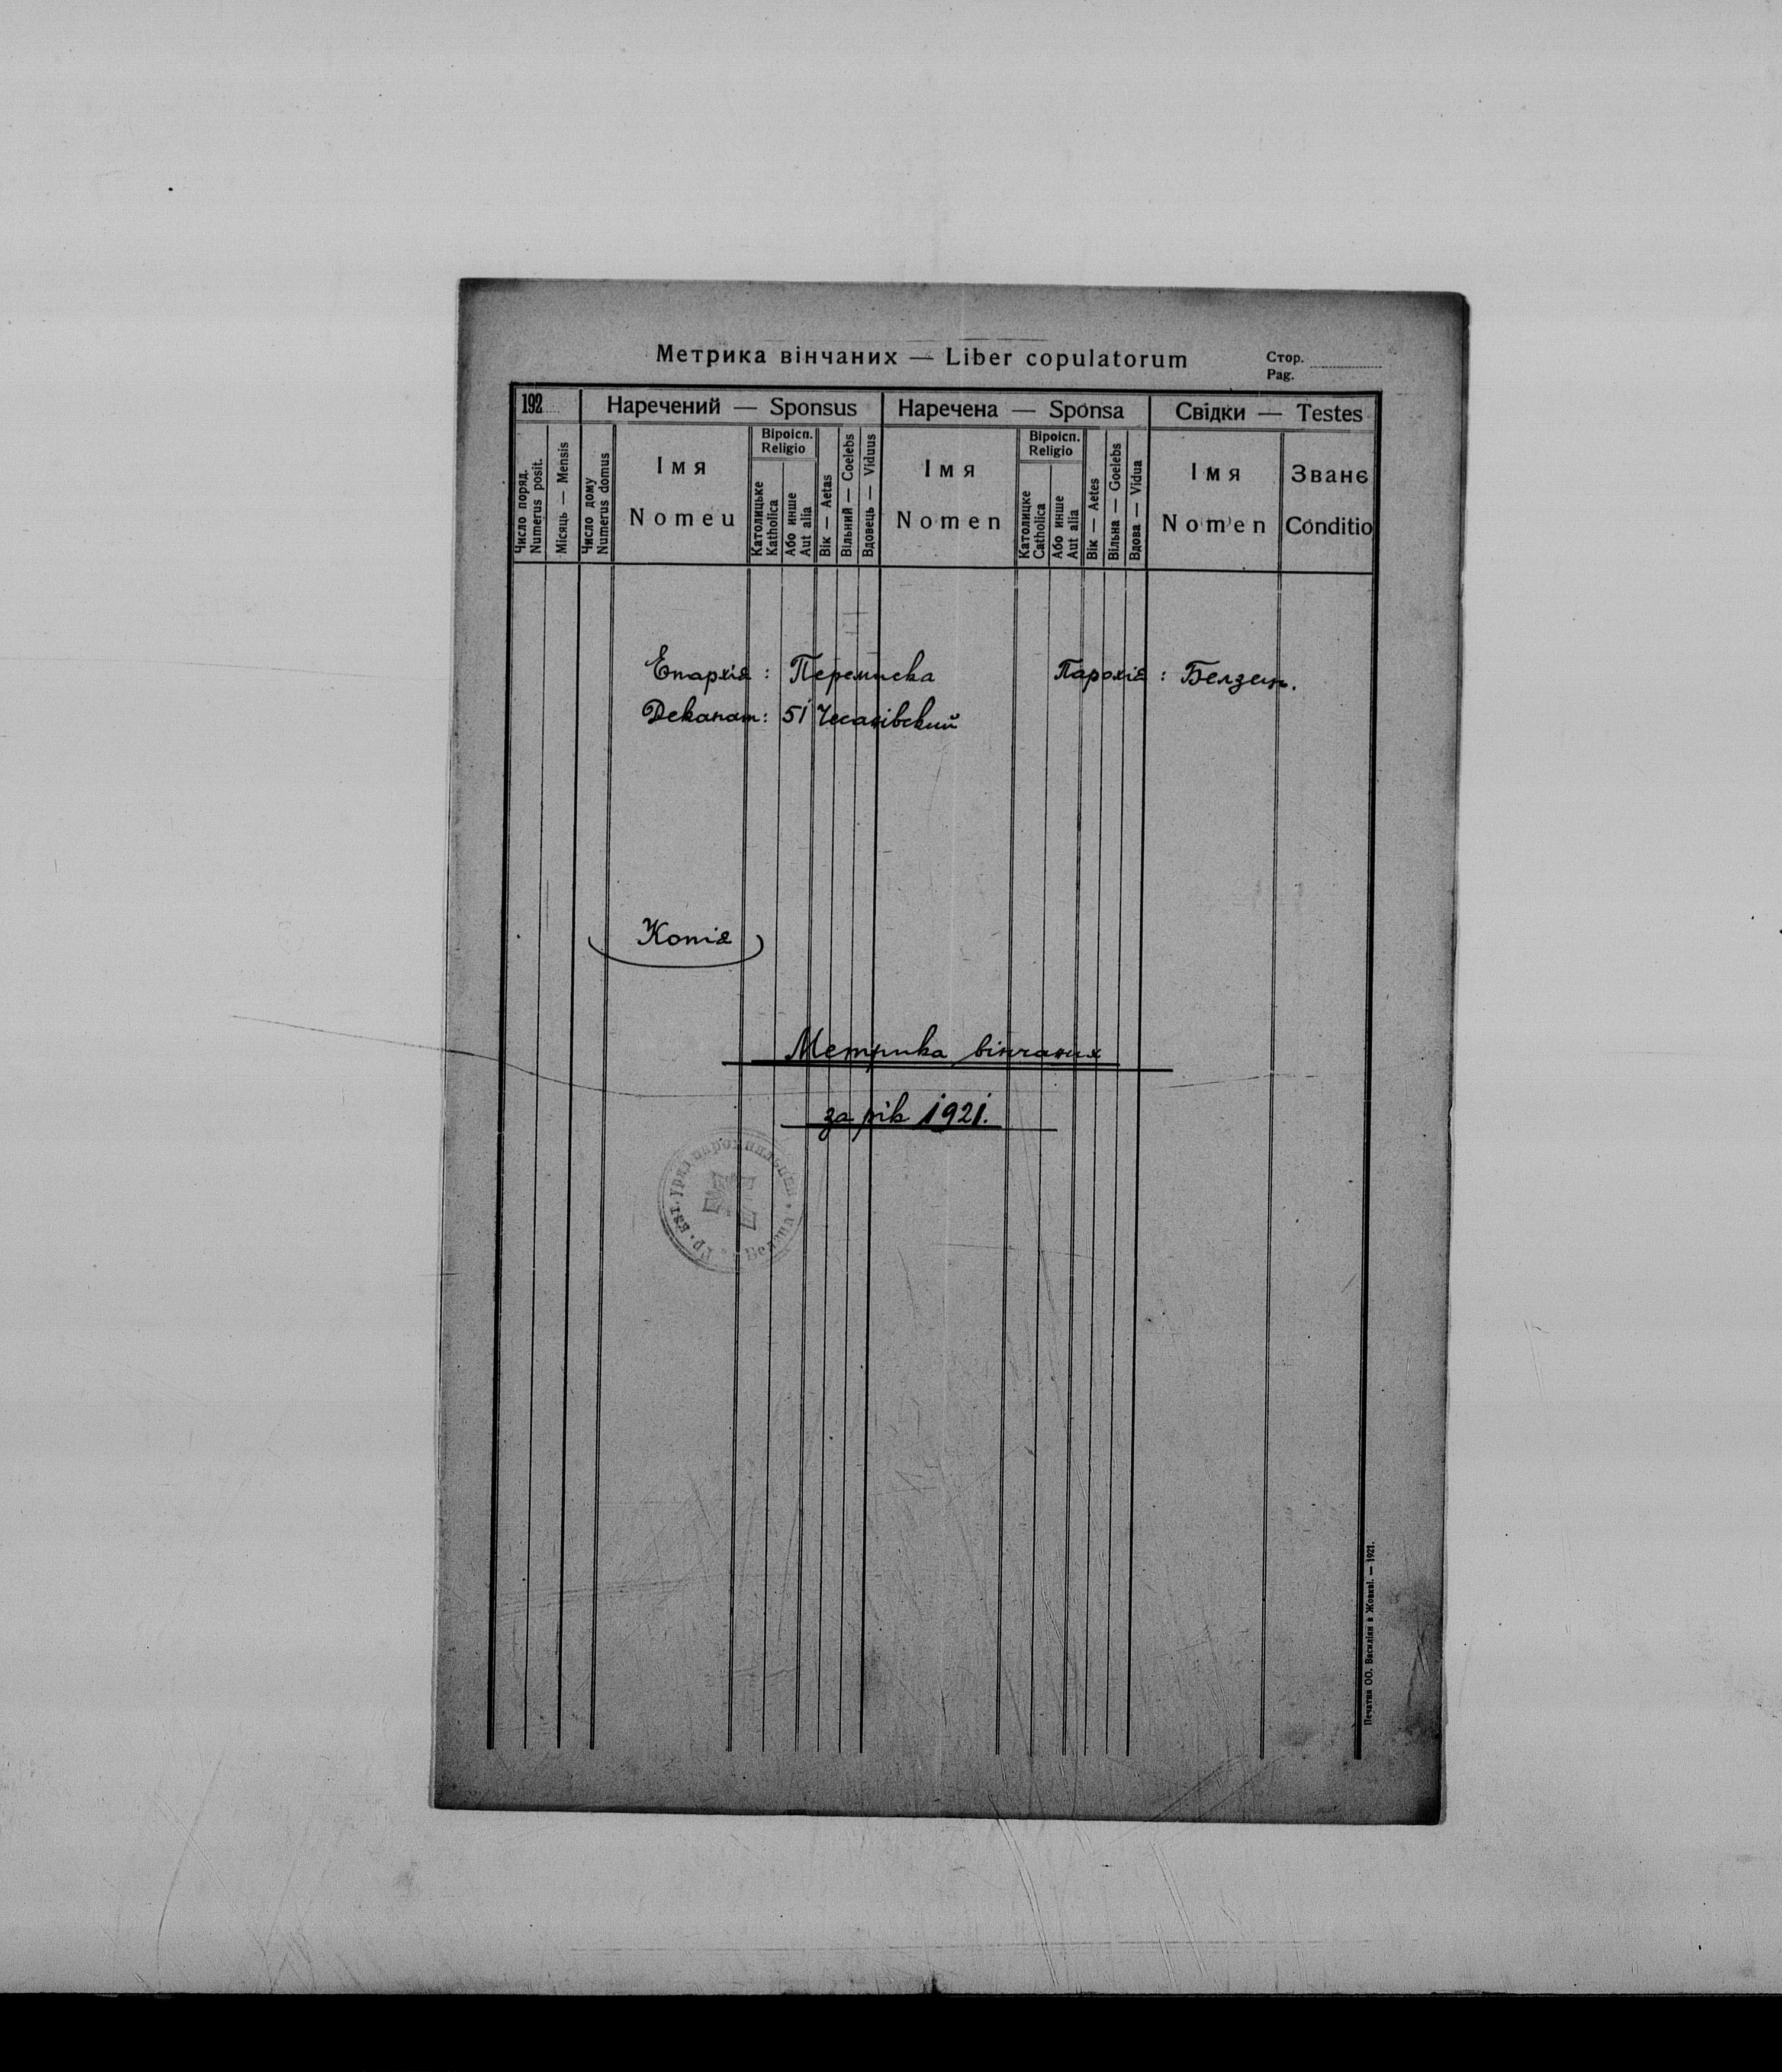 Метрика вінчаних — Liber copulatorum
Стор.
Pag.
192
Наречений — Sponsus
Наречена — Sponsa
Свідки — Testes
Число поряд.
Numerus posit.
Місяць — Mensis
Число дому
Numerus domus
Імя
Nomeu
Віроісп.
Religio
Католицьке
Katholica
Або инше
Aut alia
Вік — Aetas
Вільний — Coelebs
Вдовець — Viduus
Імя
Nomen
Віроісп.
Religio
Католицке
Catholica
Або инше
Aut alia
Вік — Aetes
Вільна — Goelebs
Вдова — Vidua
Імя
Nomen
Званє
Conditio
Епархія : Перемиска
Парохія : Белзец.
Деканат: 51 Чесанівский
Копія
Метрика вінчаних
за рік 1921.
Гр. кат. уряд парохіяльний
Печатня ОО. Василіян в Жовкві. — 1921.